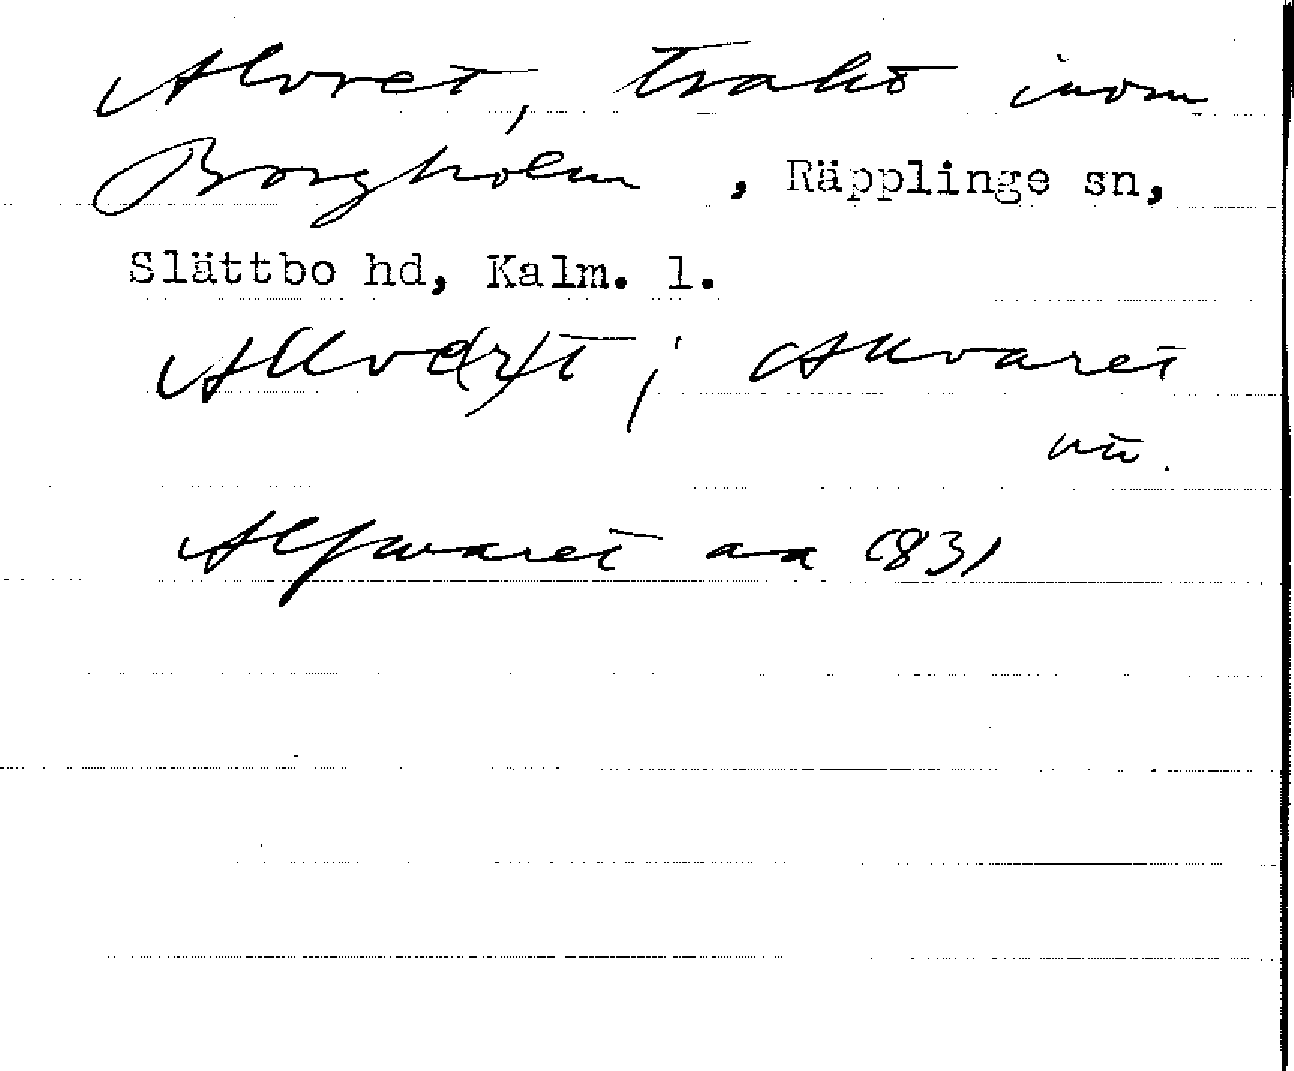 Alvret, trakt inom
Borgholm, Räpplinge sn,
Slättbo hd, Kalm. l.
Allve(r)t; Allvaret
Alfwaret aa 1831